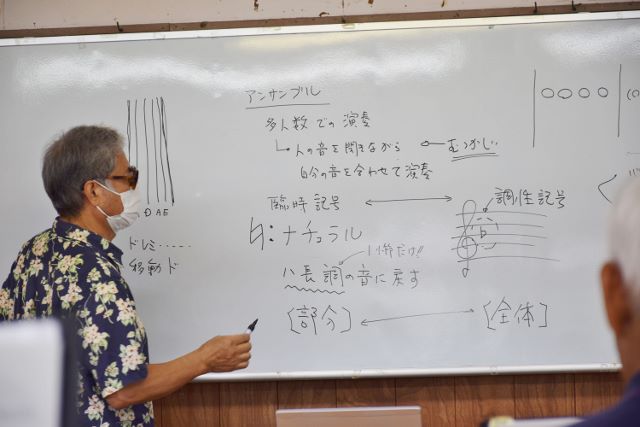 アンサンブル
多人数での演奏
人の音を聞きながら むつかしい
自分の音を合わせて演奏
臨時記号 調性記号
♮:ナチュラル
1小節だけ!!
ハ長調の音に戻す
[部分] [全体]
DAE
ドレミ……
移動ド